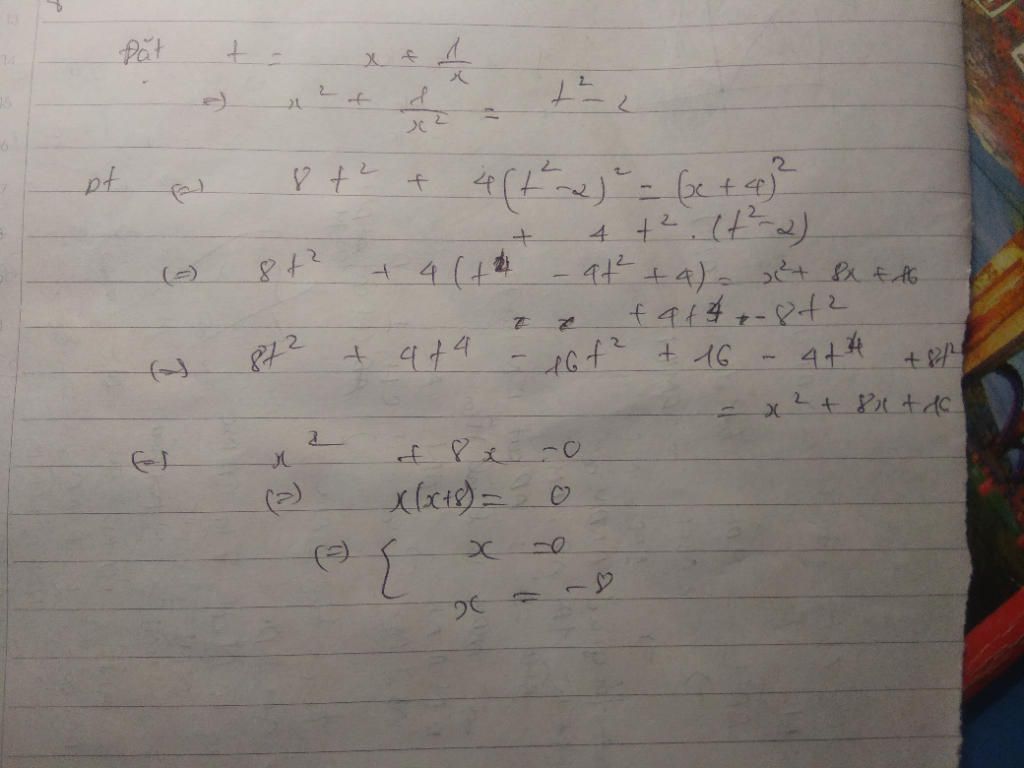 Đặt t = x + 1/x
=) x² + 1/x² = t² - 2
pt (=) 8t² + 4(t²-2)² = (x+4)²
+ 4t².(t²-2)
(=) 8t² + 4(t⁴ - 4t² + 4) = x² + 8x + 16
+ 4t⁴ - 8t²
(=) 8t² + 4t⁴ - 16t² + 16 - 4t⁴ + 8t²
= x² + 8x + 16
(=) x² + 8x = 0
(=) x(x+8) = 0
(=) { x = 0
x = -8